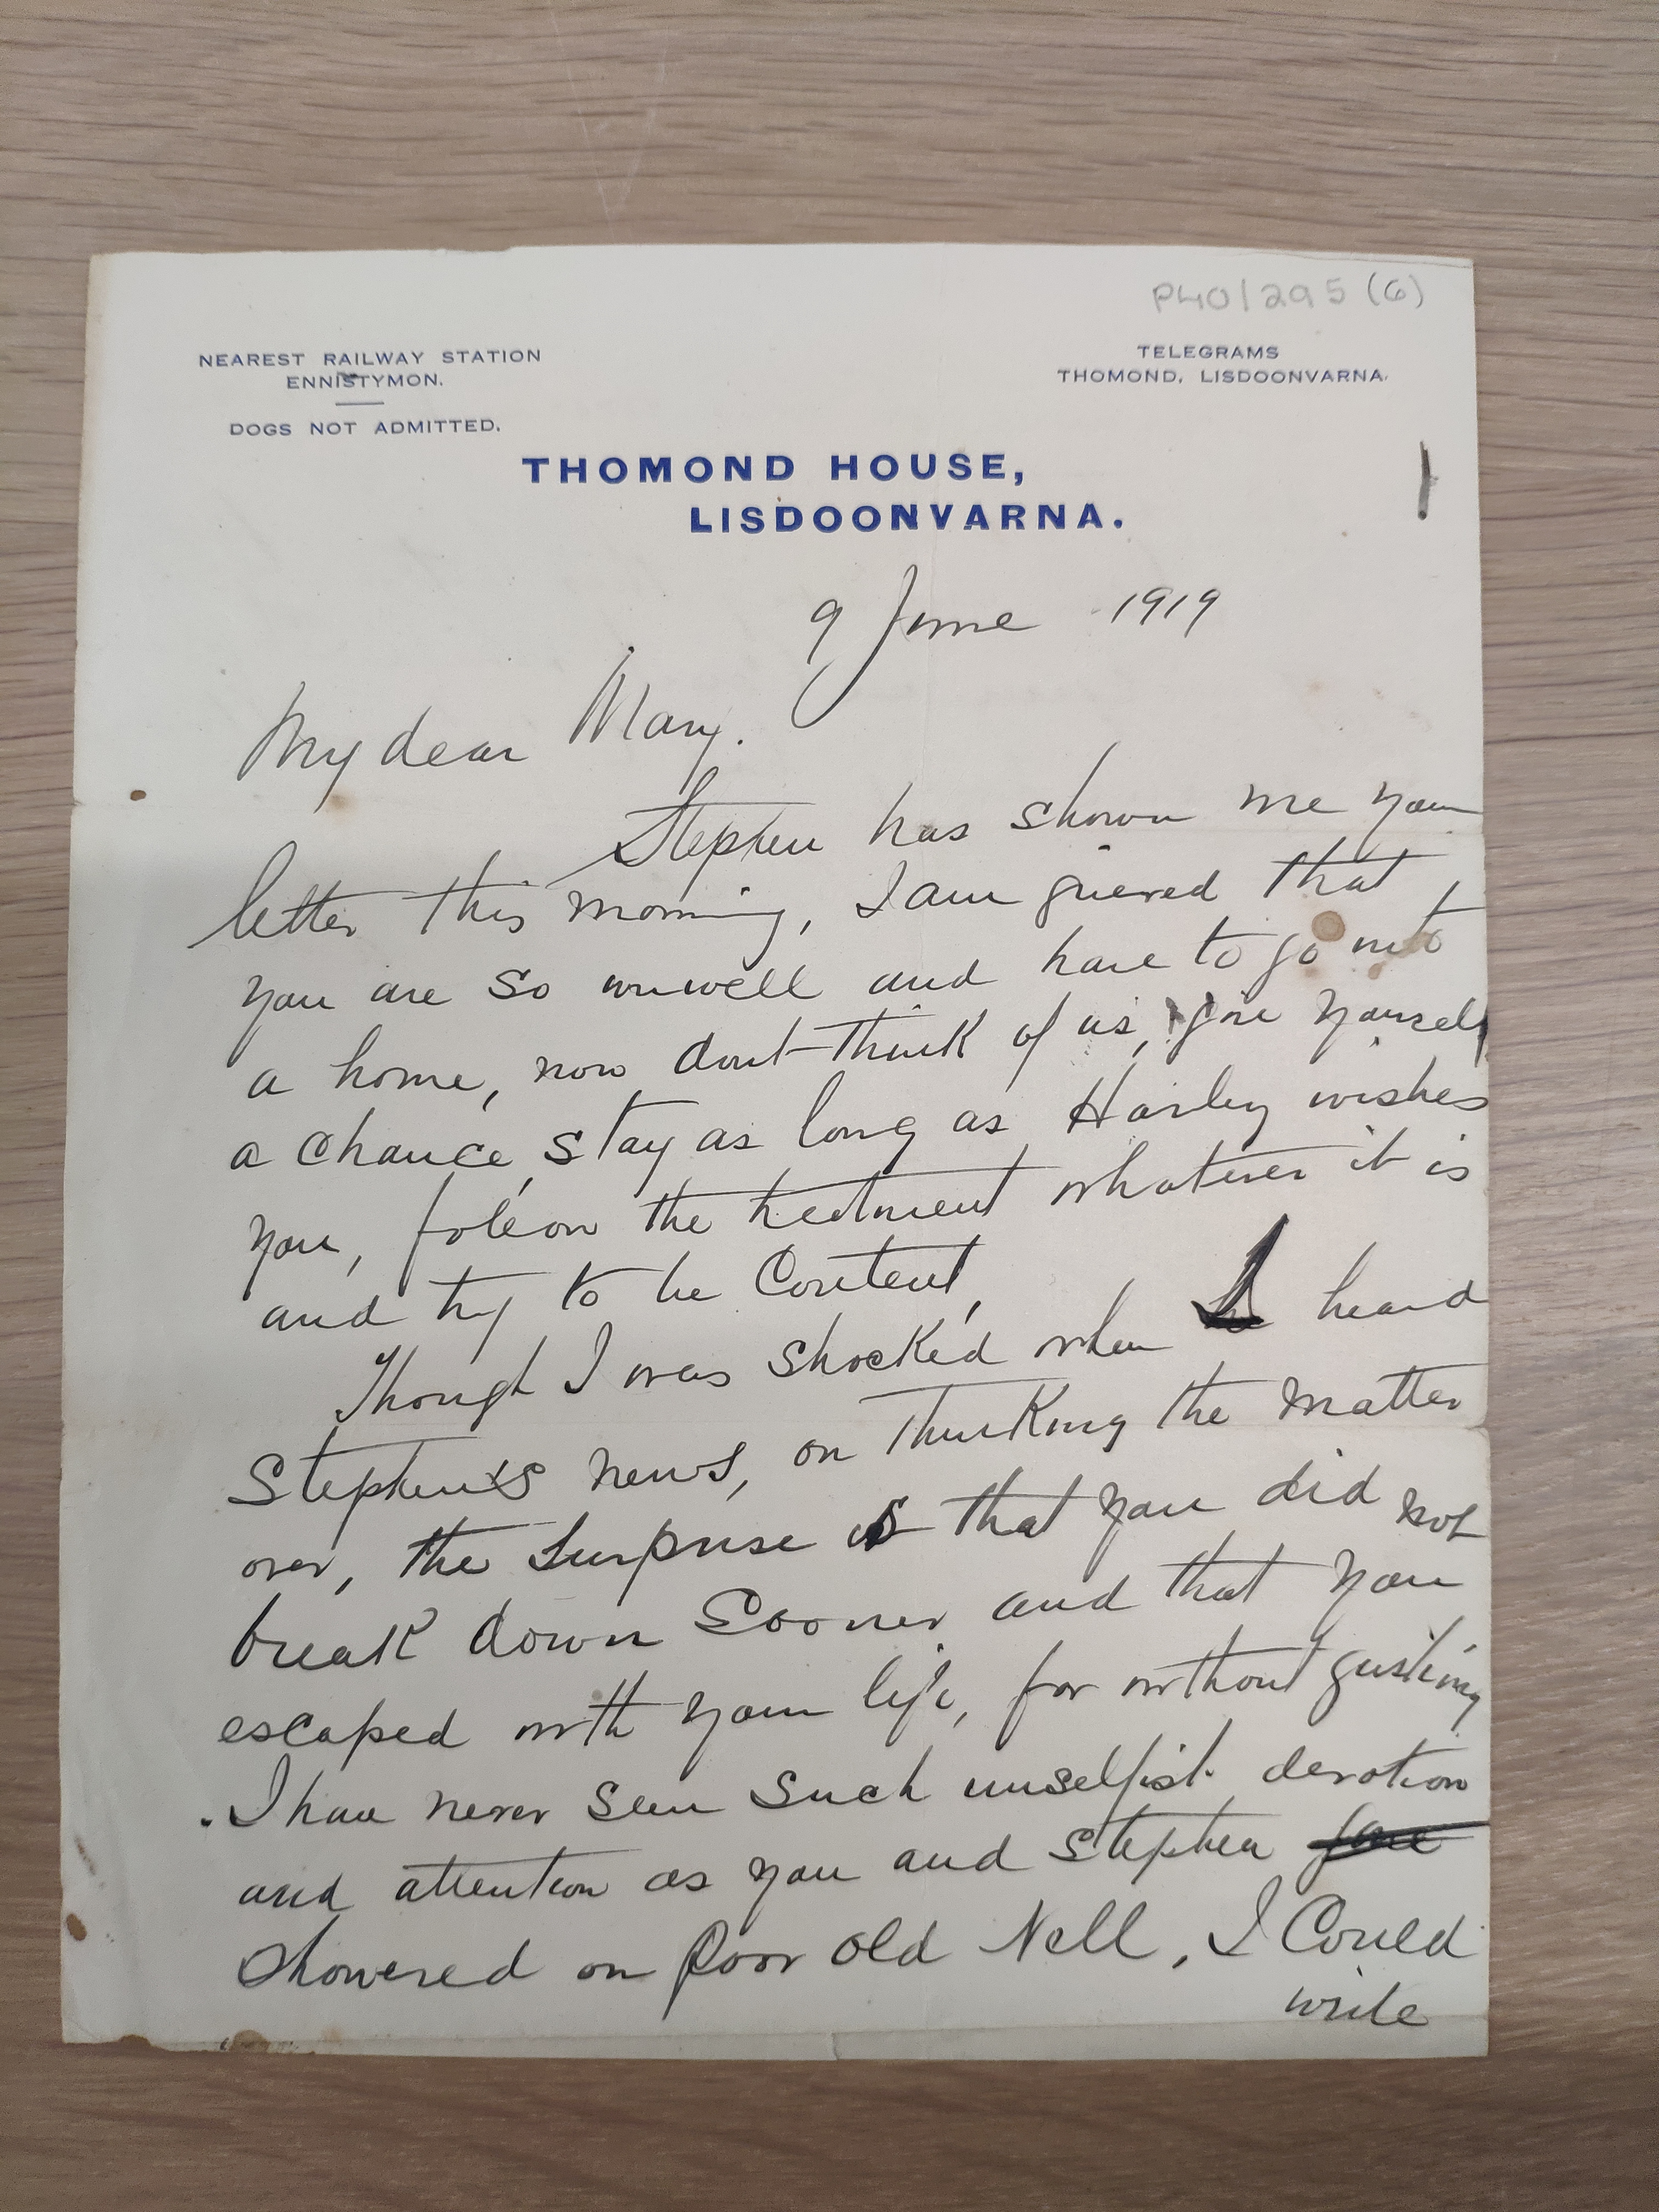 P40/295 (6)
NEAREST RAILWAY STATION
ENNISTYMON.
DOGS NOT ADMITTED.
TELEGRAMS
THOMOND, LISDOONVARNA.
THOMOND HOUSE,
LISDOONVARNA.
9 June 1919
My dear Mary.
Stephen has shown me your
letter this morning, I am grieved that
you are so unwell and have to go into
a home, now dont think of us, give yourself
a chance, stay as long as Harley wishes
you, the treatment whatever it is
and try to be Content,
Though I was shocked when I heard
Stephen's news, on thinking the matter
over, the surprise is that you did not
break down sooner and that you
escaped with your life, for without gushing
I have never seen such unselfish devotion
and attention as you and Stephen
showered on poor old Nell, I Could
write